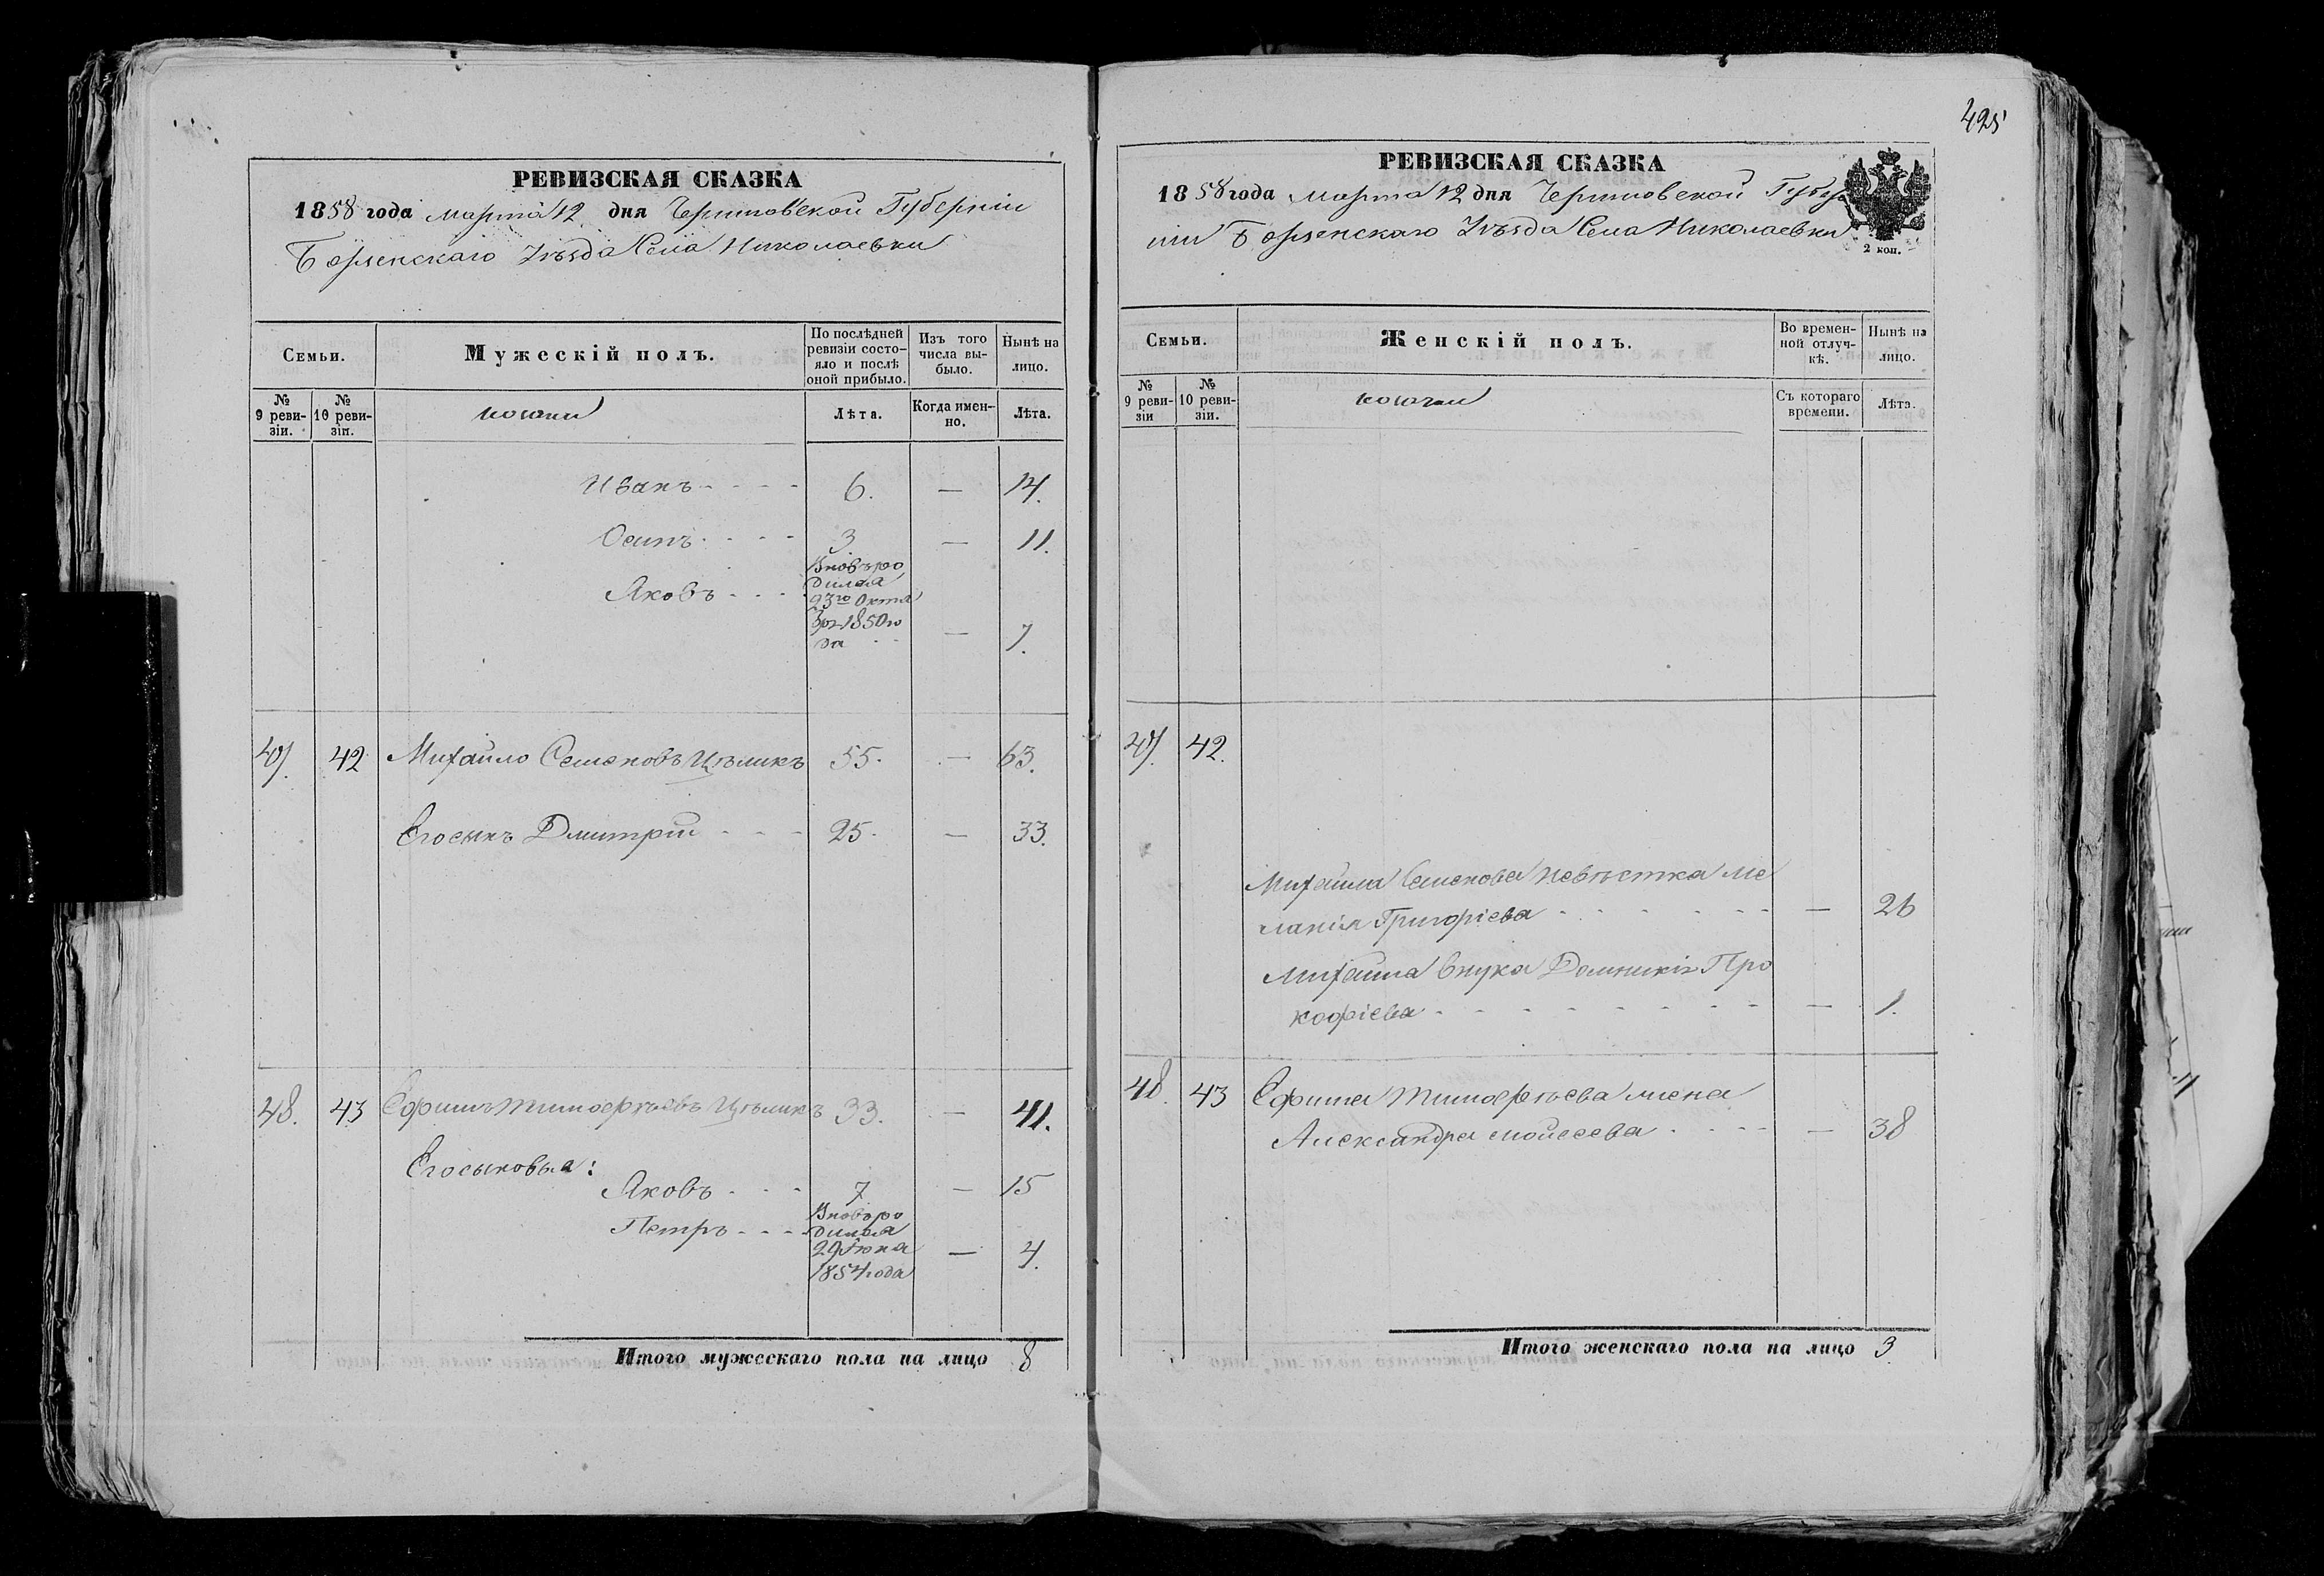 РЕВИЗСКАЯ СКАЗКА
1858 года марта 12 дня Черниговской Губерніи
Борзенскаго Уѣзда Села Николаевки
Семьи.
Мужескій полъ.
По послѣдней ревизіи состо-
яло и послѣ оной прибыло.
Изъ того числа вы-
было.
Нынѣ на лицо.
№ 9 реви-
зіи.
№ 10 реви-
зіи.
козаки
Лѣта.
Когда имен-
но.
Лѣта.
Иванъ 6. — 14.
Осипъ 3 — 11.
Яковъ
Вновь ро
дился
23го Октя
бря 1850 го
да — 7.
47. 42 Михайло Семеновъ Цѣликъ 55. — 63.
Его сынъ Дмитрій 25. — 33.
48. 43 Ефимъ Тимофѣевъ Цѣликъ 33. — 41.
Его сыновья:
Яковъ 7 — 15
Петръ
Вновь ро
дился
29 Іюня
1854 года — 4.
Итого мужескаго пола на лицо 8
425
РЕВИЗСКАЯ СКАЗКА
1858 года марта 12 дня Черниговской Губер
ніи Борзенскаго Уѣзда Села Николаевки
2 коп.
Семьи.
Женскій полъ.
Во времен-
ной отлуч-
кѣ.
Нынѣ на лицо.
№ 9 реви-
зіи
№ 10 реви-
зіи.
козачки
Съ котораго времени.
Лѣта.
47. 42.
Михайла Семенова невѣстка Ме
ланія Григорьева — 26
Михайла внука Домникія Про
кофіева — 1.
48. 43 Ефима Тимофѣева жена
Александра Моисеева — 38
Итого женскаго пола на лицо 3